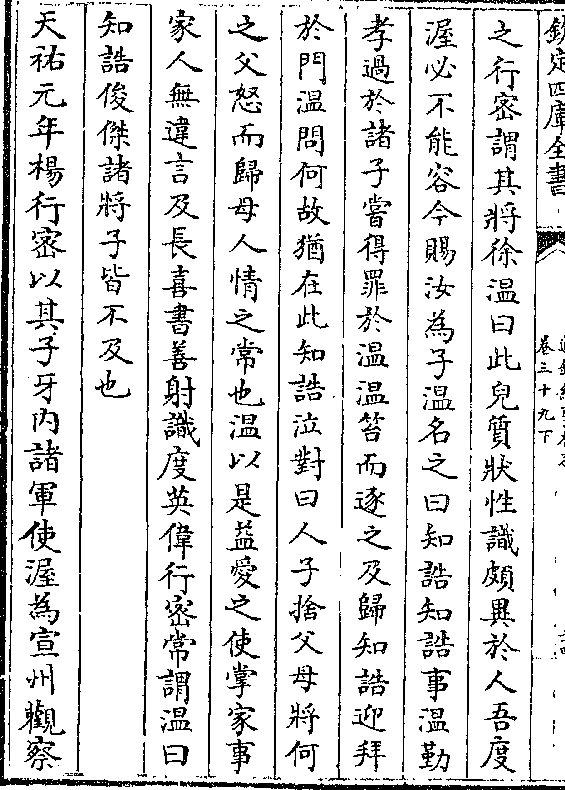 欽定四庫全書
卷三十九下
之行密謂其將徐溫曰此兒質狀性識頗異於人吾度
渥必不能容今賜汝為子溫名之曰知誥知誥事溫勤
孝過於諸子嘗得罪於温温笞而逐之及歸知誥迎拜
於門溫問何故猶在此知誥泣對曰人子捨父母將何
之父怒而歸母人情之常也溫以是益愛之使掌家事
家人無違言及長喜書善射識度英偉行密常謂溫曰
知誥俊傑諸將子皆不及也
天祐元年楊行密以其子牙內諸軍使渥為宣州觀察